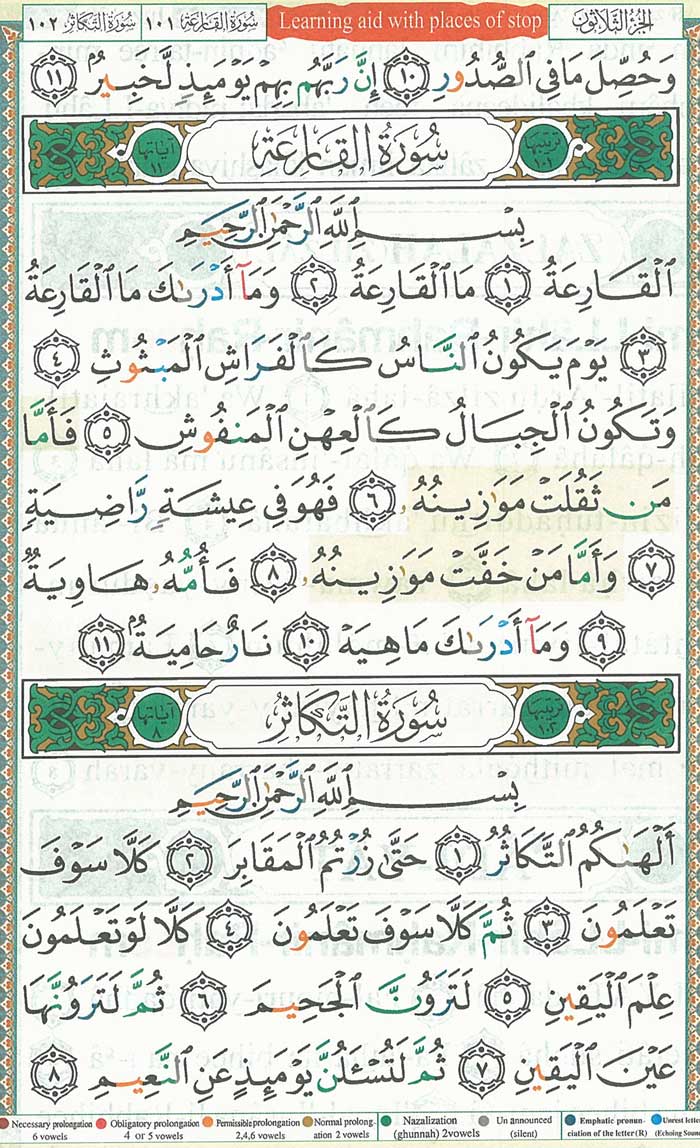 الجزء الثلاثون Learning aid with places of stop سُورَةُ القَارِعَة ١٠١ سُورَةُ التَّكَاثُرِ ١٠٢
وَحُصِّلَ مَا فِى ٱلصُّدُورِ ١٠ إِنَّ رَبَّهُم بِهِمْ يَوْمَئِذٍ لَّخَبِيرٌۢ ١١
ترتيبها ١٠١ سُورَةُ القَارِعَةِ آياتها ١١
بِسْمِ ٱللَّهِ ٱلرَّحْمَٰنِ ٱلرَّحِيمِ
ٱلْقَارِعَةُ ١ مَا ٱلْقَارِعَةُ ٢ وَمَآ أَدْرَىٰكَ مَا ٱلْقَارِعَةُ
٣ يَوْمَ يَكُونُ ٱلنَّاسُ كَٱلْفَرَاشِ ٱلْمَبْثُوثِ ٤
وَتَكُونُ ٱلْجِبَالُ كَٱلْعِهْنِ ٱلْمَنفُوشِ ٥ فَأَمَّا
مَن ثَقُلَتْ مَوَٰزِينُهُۥ ٦ فَهُوَ فِى عِيشَةٍ رَّاضِيَةٍ
٧ وَأَمَّا مَنْ خَفَّتْ مَوَٰزِينُهُۥ ٨ فَأُمُّهُۥ هَاوِيَةٌ
٩ وَمَآ أَدْرَىٰكَ مَا هِيَهْ ١٠ نَارٌ حَامِيَةٌۢ ١١
ترتيبها ١٠٢ سُورَةُ التَّكَاثُرِ آياتها ٨
بِسْمِ ٱللَّهِ ٱلرَّحْمَٰنِ ٱلرَّحِيمِ
أَلْهَىٰكُمُ ٱلتَّكَاثُرُ ١ حَتَّىٰ زُرْتُمُ ٱلْمَقَابِرَ ٢ كَلَّا سَوْفَ
تَعْلَمُونَ ٣ ثُمَّ كَلَّا سَوْفَ تَعْلَمُونَ ٤ كَلَّا لَوْ تَعْلَمُونَ
عِلْمَ ٱلْيَقِينِ ٥ لَتَرَوُنَّ ٱلْجَحِيمَ ٦ ثُمَّ لَتَرَوُنَّهَا
عَيْنَ ٱلْيَقِينِ ٧ ثُمَّ لَتُسْـَٔلُنَّ يَوْمَئِذٍ عَنِ ٱلنَّعِيمِ ٨
Necessary prolongation 6 vowels Obligatory prolongation 4 or 5 vowels Permissible prolongation 2,4,6 vowels Normal prolongation 2 vowels Nazalization (ghunnah) 2vowels Un announced (silent) Emphatic pronunciation of the letter (R) Unrest letters (Echoing Sound